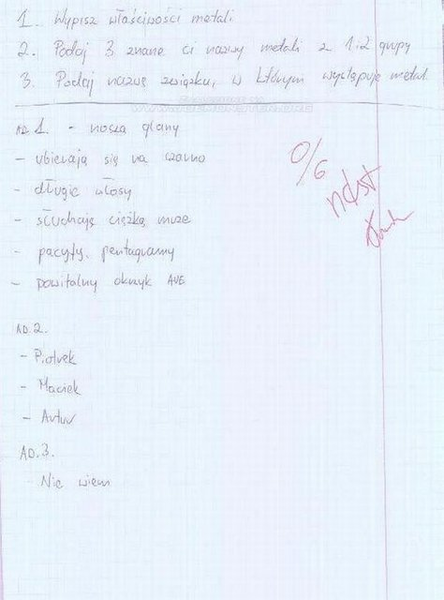 1. Wypisz właściwości metali
2. Podaj 3 znane ci nazwy metali z 1 i 2 grupy
3. Podaj nazwę związku, w którym występuje metal.
AD. 1. - noszą glany
- ubierają się na czarno
- długie włosy
- słuchają ciężkiej muze
- pacyfy, pentagramy
- powitalny okrzyk AVE
0/6
ndst
AD. 2.
- Piotrek
- Maciek
- Artur
AD. 3.
Nie wiem